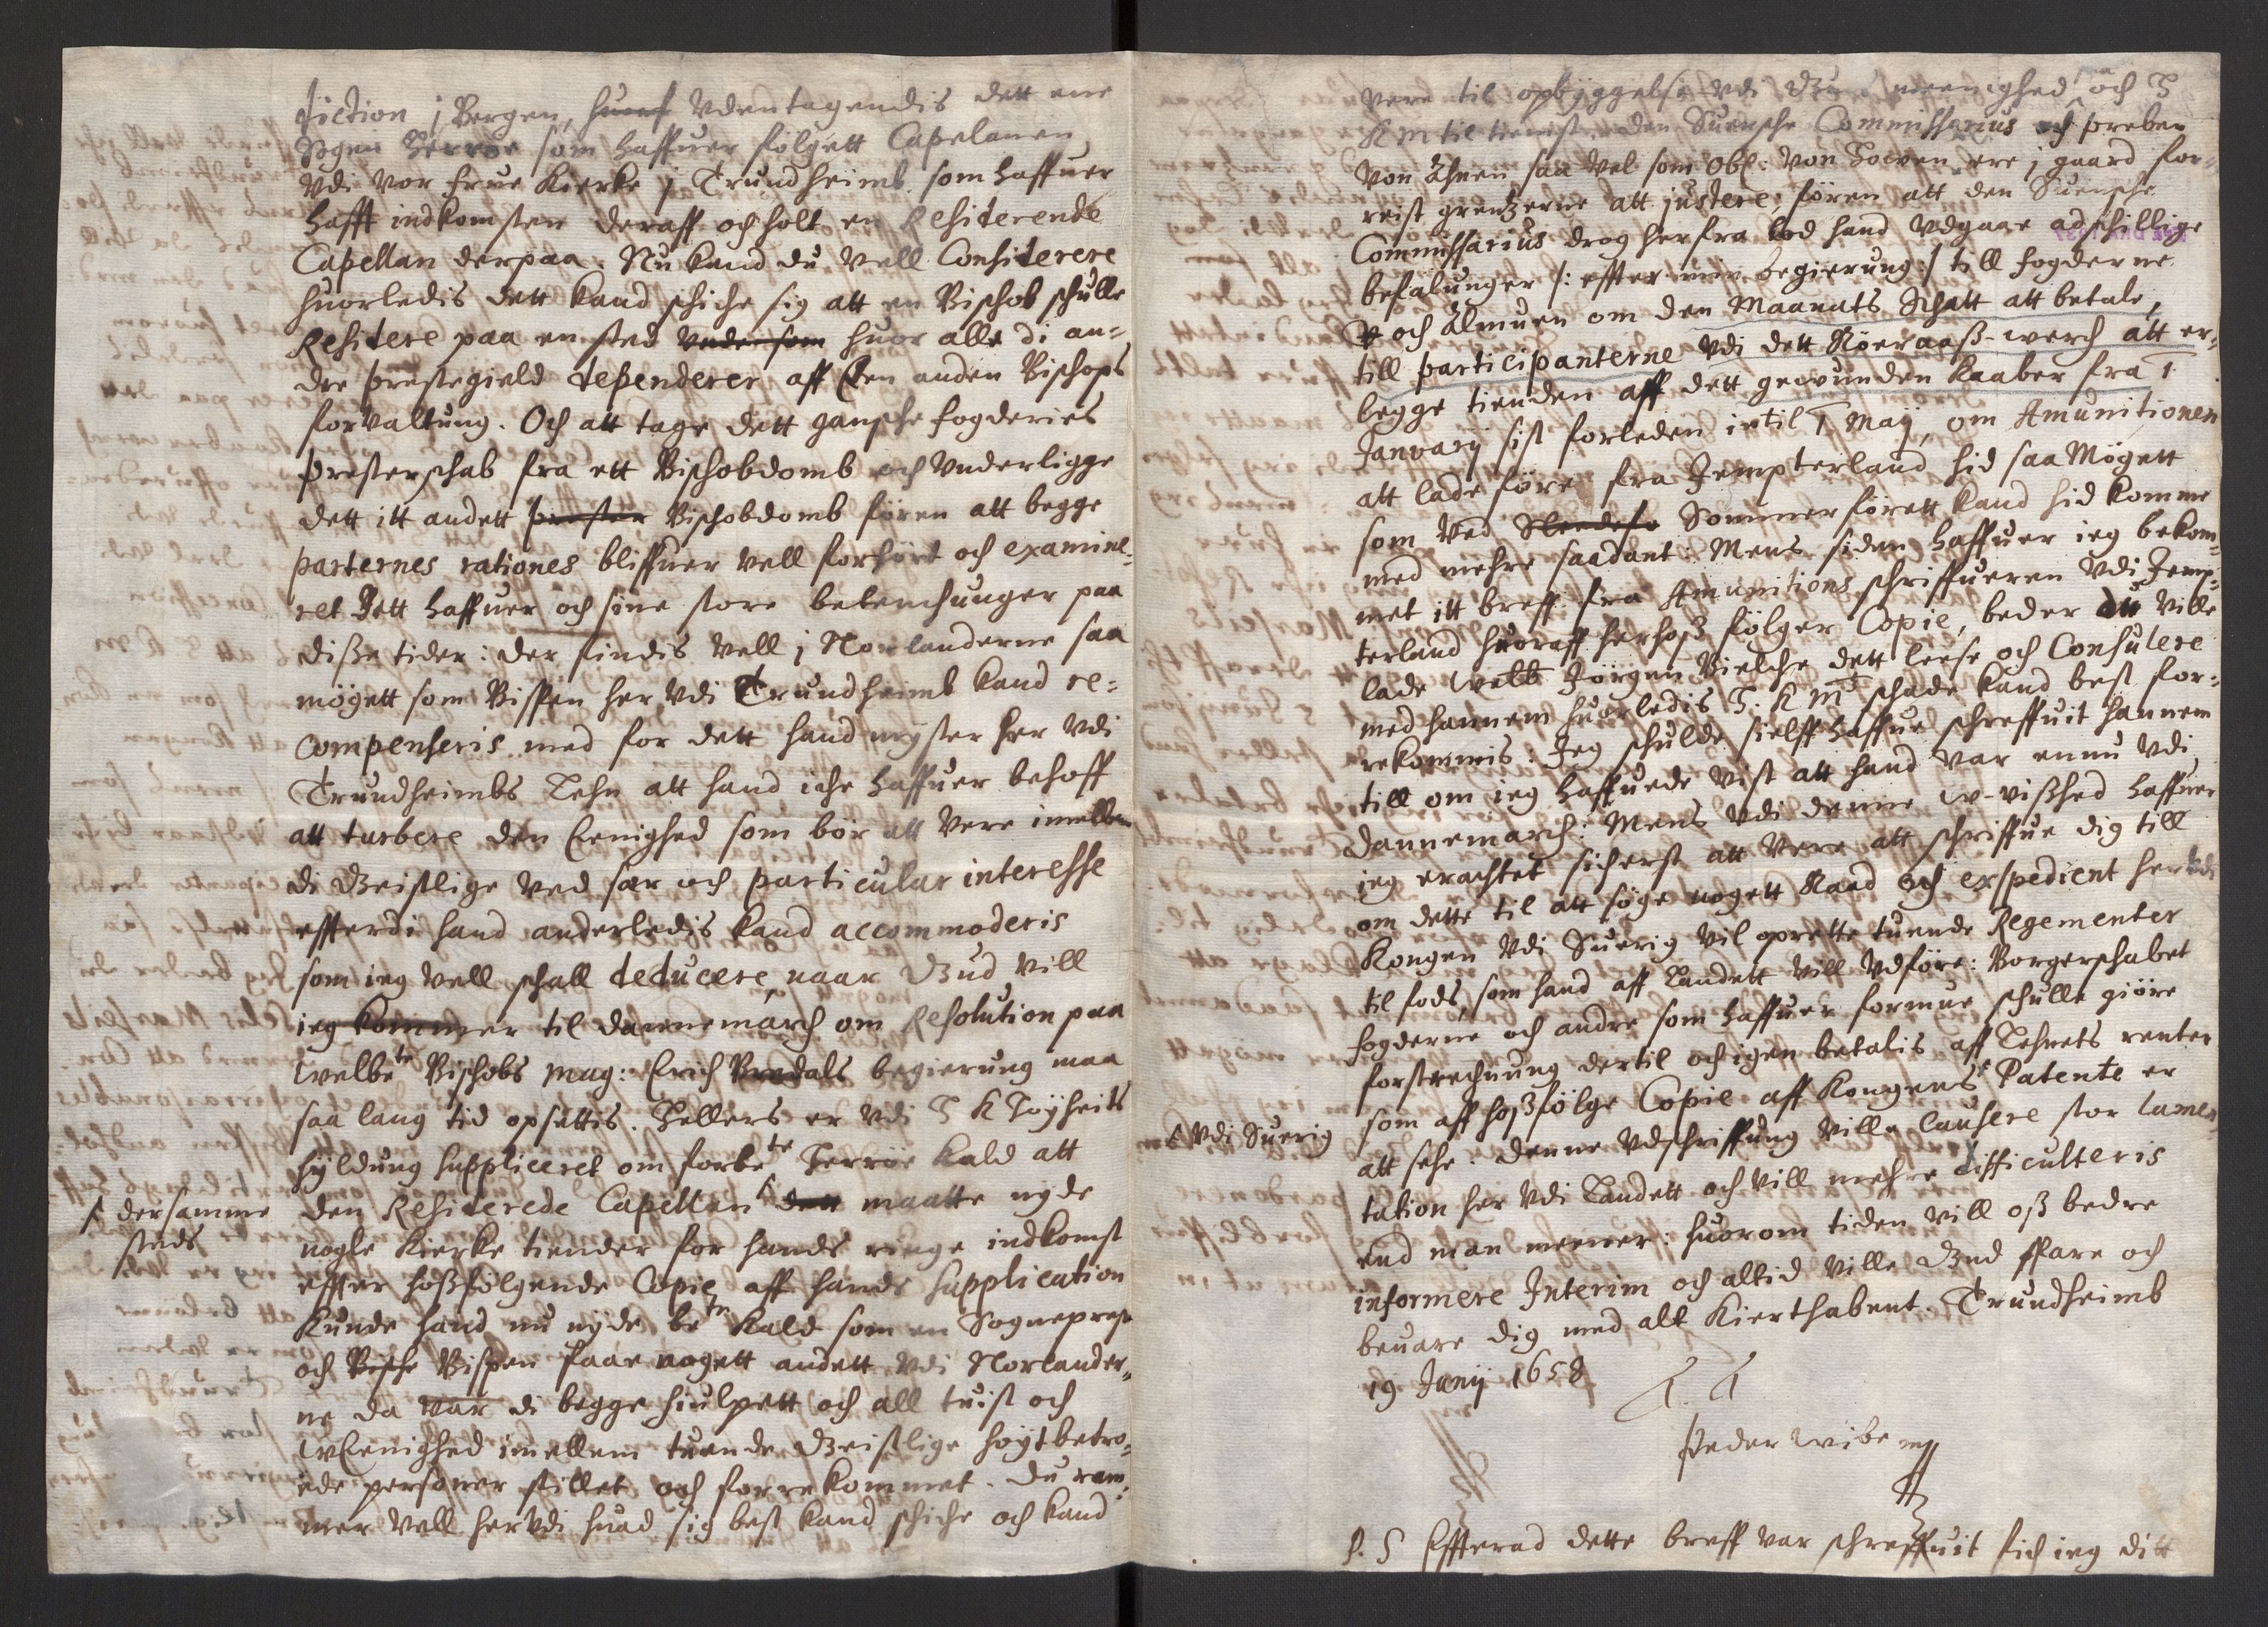 diction j Bergen, huorf vdentagendis dett ene
Sogen Herrøe som haffuer følgett Capelanen
vdi vor frue Kierke j Trundheimb som haffuer
hafft indkomsten deraff och holt en Residerende
Capellan derpaa. Nu kand du vell Considerere
huorledis dett kand schiche sig att en Bischob schulle
Residere paa en sted vnder som huor alle di an-
dre prestegield dependerer aff Een anden Bischops
forvaltung. Och att tage dett gansche fogderies
presterschab fra ett Bischobdomb och vnderligge
dett itt andett prester Bischobdomb føren att begge
parternes rationes bliffuer vell forhørt och examine-
ret Dett haffuer och sine store betenchunger paa
disse tider: der findis vell j Norlanderne saa
møgett som Bispen her vdi Trundheimb kand re-
compenseris med for dett hand myster her vdi
Trundheimbs Lehn att hand iche haffuer behoff
att turbere den Eenighed som bør att vere imellem
di Geistlige ved sær och particular interesse
effterdi hand anderledis kand accommoderis
som ieg vell schall deducere, naar Gud vill
ieg kommer til Dannemarch om Resolution paa
welbte Bischobs Mag: Erich Bredals begierung maa
saa lang tid opsettis. Hellers er vdi H K Høyheits
hyldung suppliceret om forbete Herrøe kald att
den Residerede Capellan dett maatte nyde
/ dersamme
steds
nogle Kierke tiender for hands ringe indkomst
effter hossfølgende Copie aff hands supplication
Kunde hand nu nyde bete Kald som en Sogneprest
och Bische Bispen faar nogett andett vdi Norlander-
ne da var di begge hiulpett och all tuist och
wEenighed imellem tuende Geistlige høytbetro-
ede personer stillet och forrekommet. Du ram-
mer vell hervdi huad sig best kand schiche och kand
vere til opbyggelse vdi Guds meenighed och H
K M til tieniste. Den Suensche Commissarius och Preben
von Ahnen saa vel som Obl: von Hoven ere j gaard for-
reist grentzerne att justere, føren att den Suensche
Commissarius drog herfra lod hand vdgaae adschillige
befalunger /: effter min begierung :/ till fogderne
och Almuen om den Maanats Schatt att betale,
till participanterne vdi dett Røeraass-werch att er-
legge tienden aff dett gewunden kaaber fra 1
Januarij sist forleden intil 1 Maij, om Amunitionen
att lade føre fra Jempterland hid saa Møgett
som ved Sledeføe Sommerførett kand hid komme
med mehre saadant: Mens siden haffuer ieg bekom-
met itt breff fra Amunitions schriffueren vdi Jemp-
terland huoraff herhoss følger Copie, beder du ville
lade welb Jørgen Bielche dett leese och Consulere
med hannem huorledis H. K Mts schade kand best for-
rekommis: Jeg schulde sielff haffue schreffuit hannem
till om ieg haffuede vist att hand var ennu vdi
Dannemarch: Mens vdi denne w-vished haffuer
ieg erachtet sicherst att vere att schriffue dig till
om dette til att søge nogett Raad och expedient hervdi
Kongen vdi Suerig vil oprette tuende Regementer
til fods som hand aff Landett vill vdføre: Borgerschabet
fogderne och andre som haffuer formue schulle giøre
forstrechnung dertil och igen betalis aff Lehnets renter
som aff hossfølge Copie aff Kongens Patente er
/ vdi Suerig
att sehe: denne vdschriffung ville causere stor lamen-
tation her vdi Landett och vill mehre difficulteris
end man meener: huorom tiden vill oss bedre
informere Interim och altid ville Gud spare och
beuare dig med alt Kierthabent. Trundheimb
19 Junij 1658
Peder Wibe
P. S Effterad dette breff var schreffuit fich ieg dit